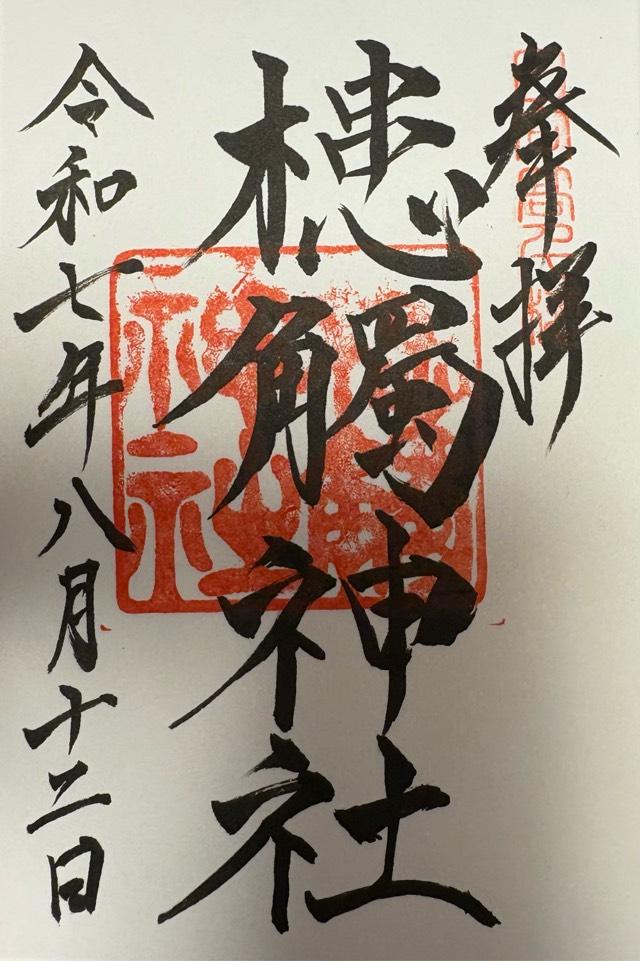 奉拝
槵觸神社
令和七年八月十二日